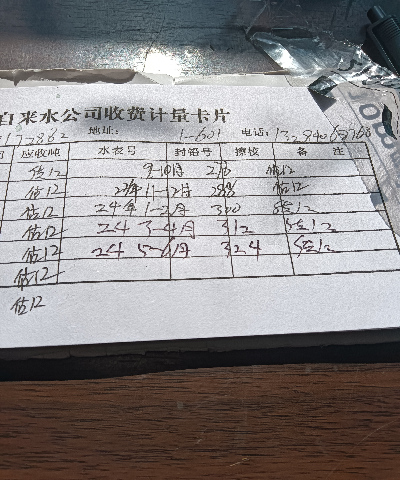 自来水公司收费计量卡片
地址: 1-601 电话:
应收吨 水表号 封铅号 撩校 备 注
估12 9-10月 276 估12
估12 23年11-12月 288 估12
估12 24年1-2月 300 估12
估12 24 3-4月 312 估12
估12 24 5-6月 324 估12
估12
估12